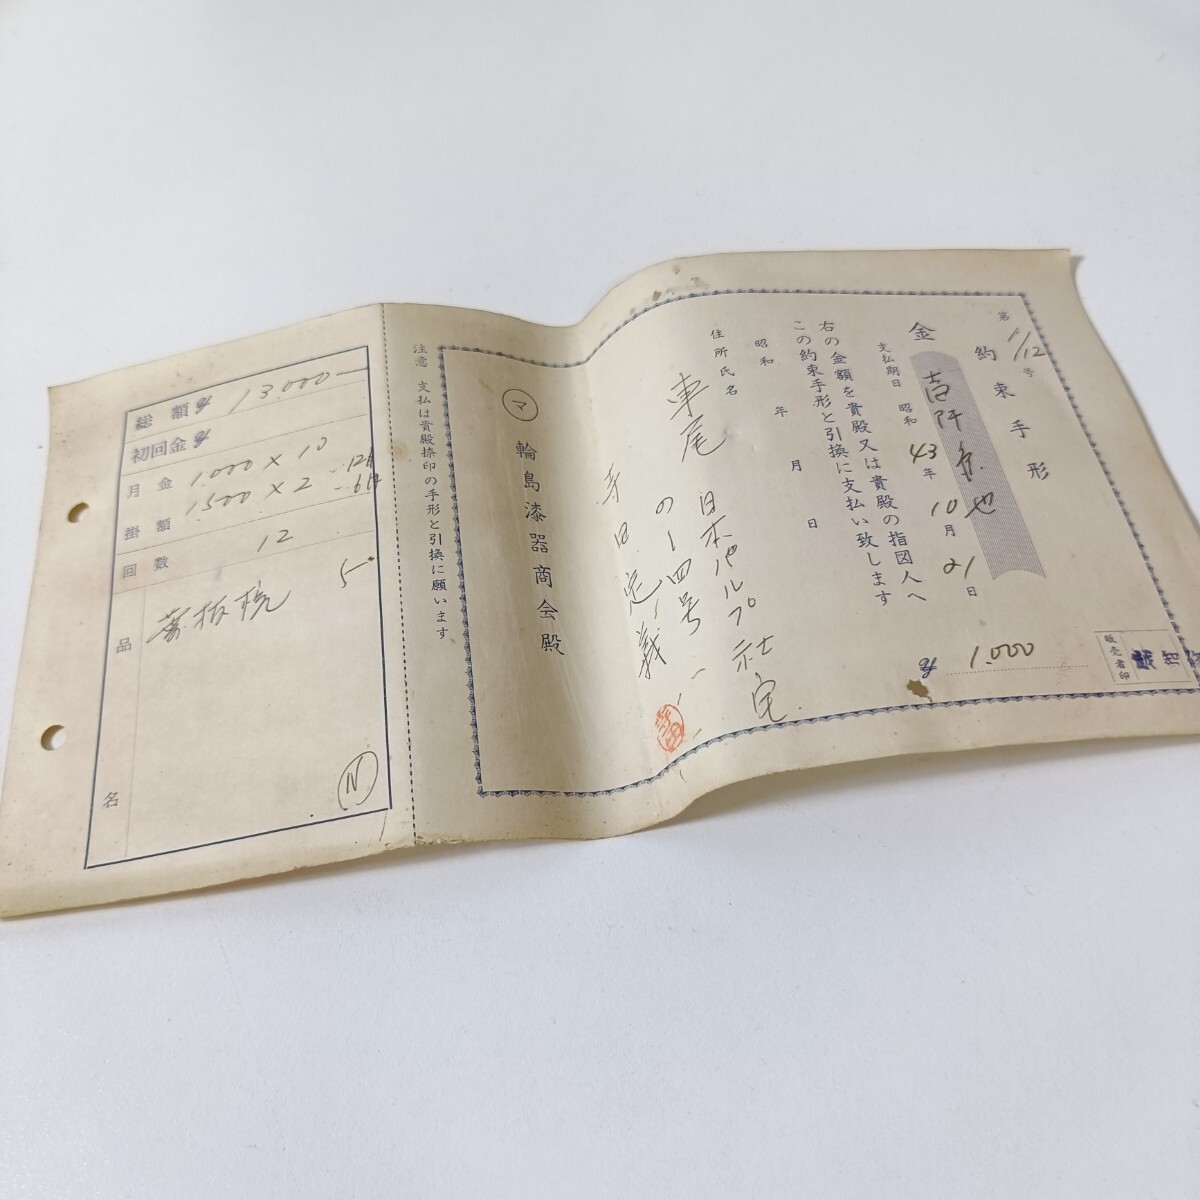 約束手形
第1/12号
金 壱阡円也
支払期日 昭和43年10月21日
右の金額を貴殿又は貴殿の指図人へ
この約束手形と引換に支払い致します
昭和 年 月 日
住所氏名
車尾 日本パルプ社宅
の一四号
寺田定義
寺田
マ 輪島漆器商会殿
1.000
販売者印
注意 支払は貴殿捺印の手形と引換に願います
総額 13.000
初回金
月掛金額 1.000×10
1500×2
回数 12
品名
5